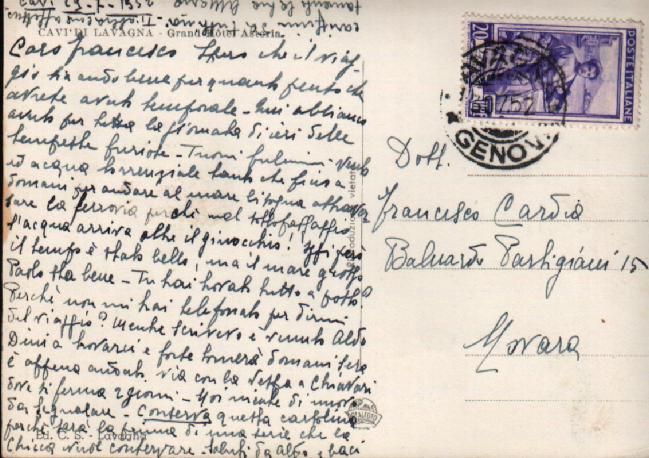 Cavi 25-7-1952
CAVI DI LAVAGNA - Grand Hôtel Astoria
Caro Francesco Spero che il viag-
gio sia andato bene per quanto pento che
avrete avuto temporale - Noi abbiamo
avuto per tutta la giornata di ieri delle
tempeste furiose - Tuoni fulmini vento
ed acqua torrenziale tanto che fino a
domani per andare al mare bisogna attraver
sare la ferrovia perchè nel sottopassaggio
l'acqua arriva oltre il ginocchio! Oggi però
il tempo è stato bello! ma il mare grosso
Paolo sta bene - Tu hai trovato tutto a posto?
Perchè non mi hai telefonato per dirmi
del viaggio? Mentre scrivevo è venuto Aldo
Dina a trovarci e forse tornerà domani sera
è appena andato via con la Vespa a Chiavari
dove si ferma 2 giorni - Noi niente di nuovo
da segnalare - Conserva questa cartolina
perchè sarà la prima di una serie che la
Chicca vuole conservare - saluti da Aldo e baci
Ed. C. S. - Lavagna
vietata
POSTE ITALIANE
LAVAGNA
GENOVA
Dott.
Francesco Cardia
Baluardo Partigiani 15
Novara